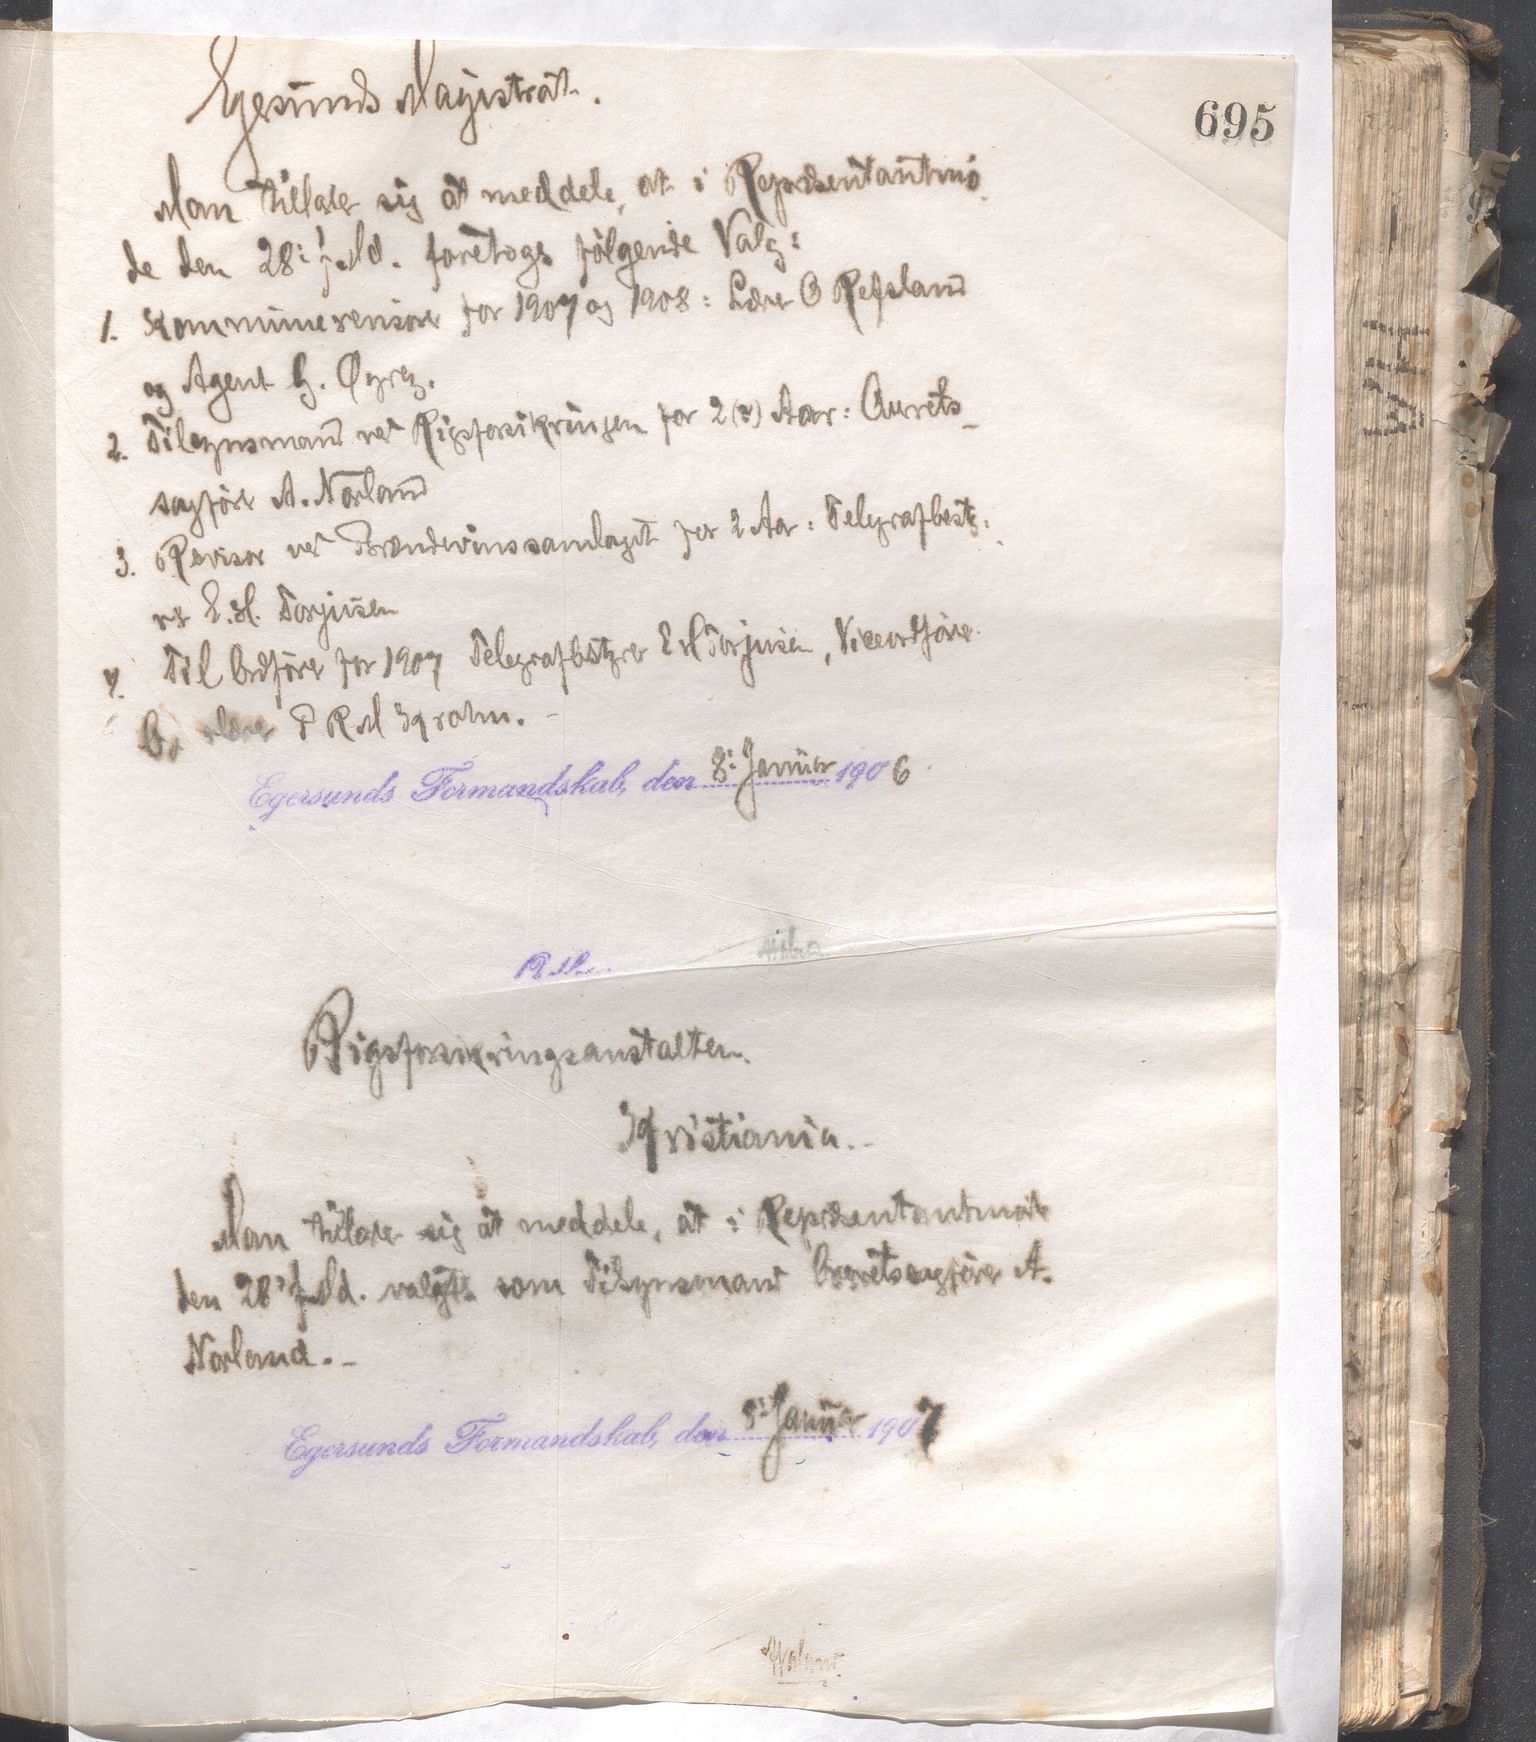 695
Egersunds Magistrat.
Man tillader sig at meddele, at i Repræsentantmö
de den 28: f. Md. foretogs fölgende Valg:
1. Kommunerevisorer for 1907 og 1908: Lærer O Refsland
og Agent G. Øyre.
2. Tilsynsmand ved Rigsforsikringen for 2 (to) Aar: Overrets-
sagförer A. Norland
3. Revisor ved Brændevinssamlaget for 2 Aar: Telegrafbesty-
rer E. M. Torjusen
4. Til Ordförer for 1907 Telegrafbstyrer E M Torjusen, Viceordförer
P R M Krohn. -
Egersunds Formandskab, den 8: Januar 1906
Rigsforsikringsanstalten.
Kristiania. -
Man tillader sig at meddele, at i Repræsentantmöde
den 28: f. Md. valgtes som Tilsynsmand Overretssagförer A.
Norland. -
Egersunds Formandskab, den 8: Januar 1907